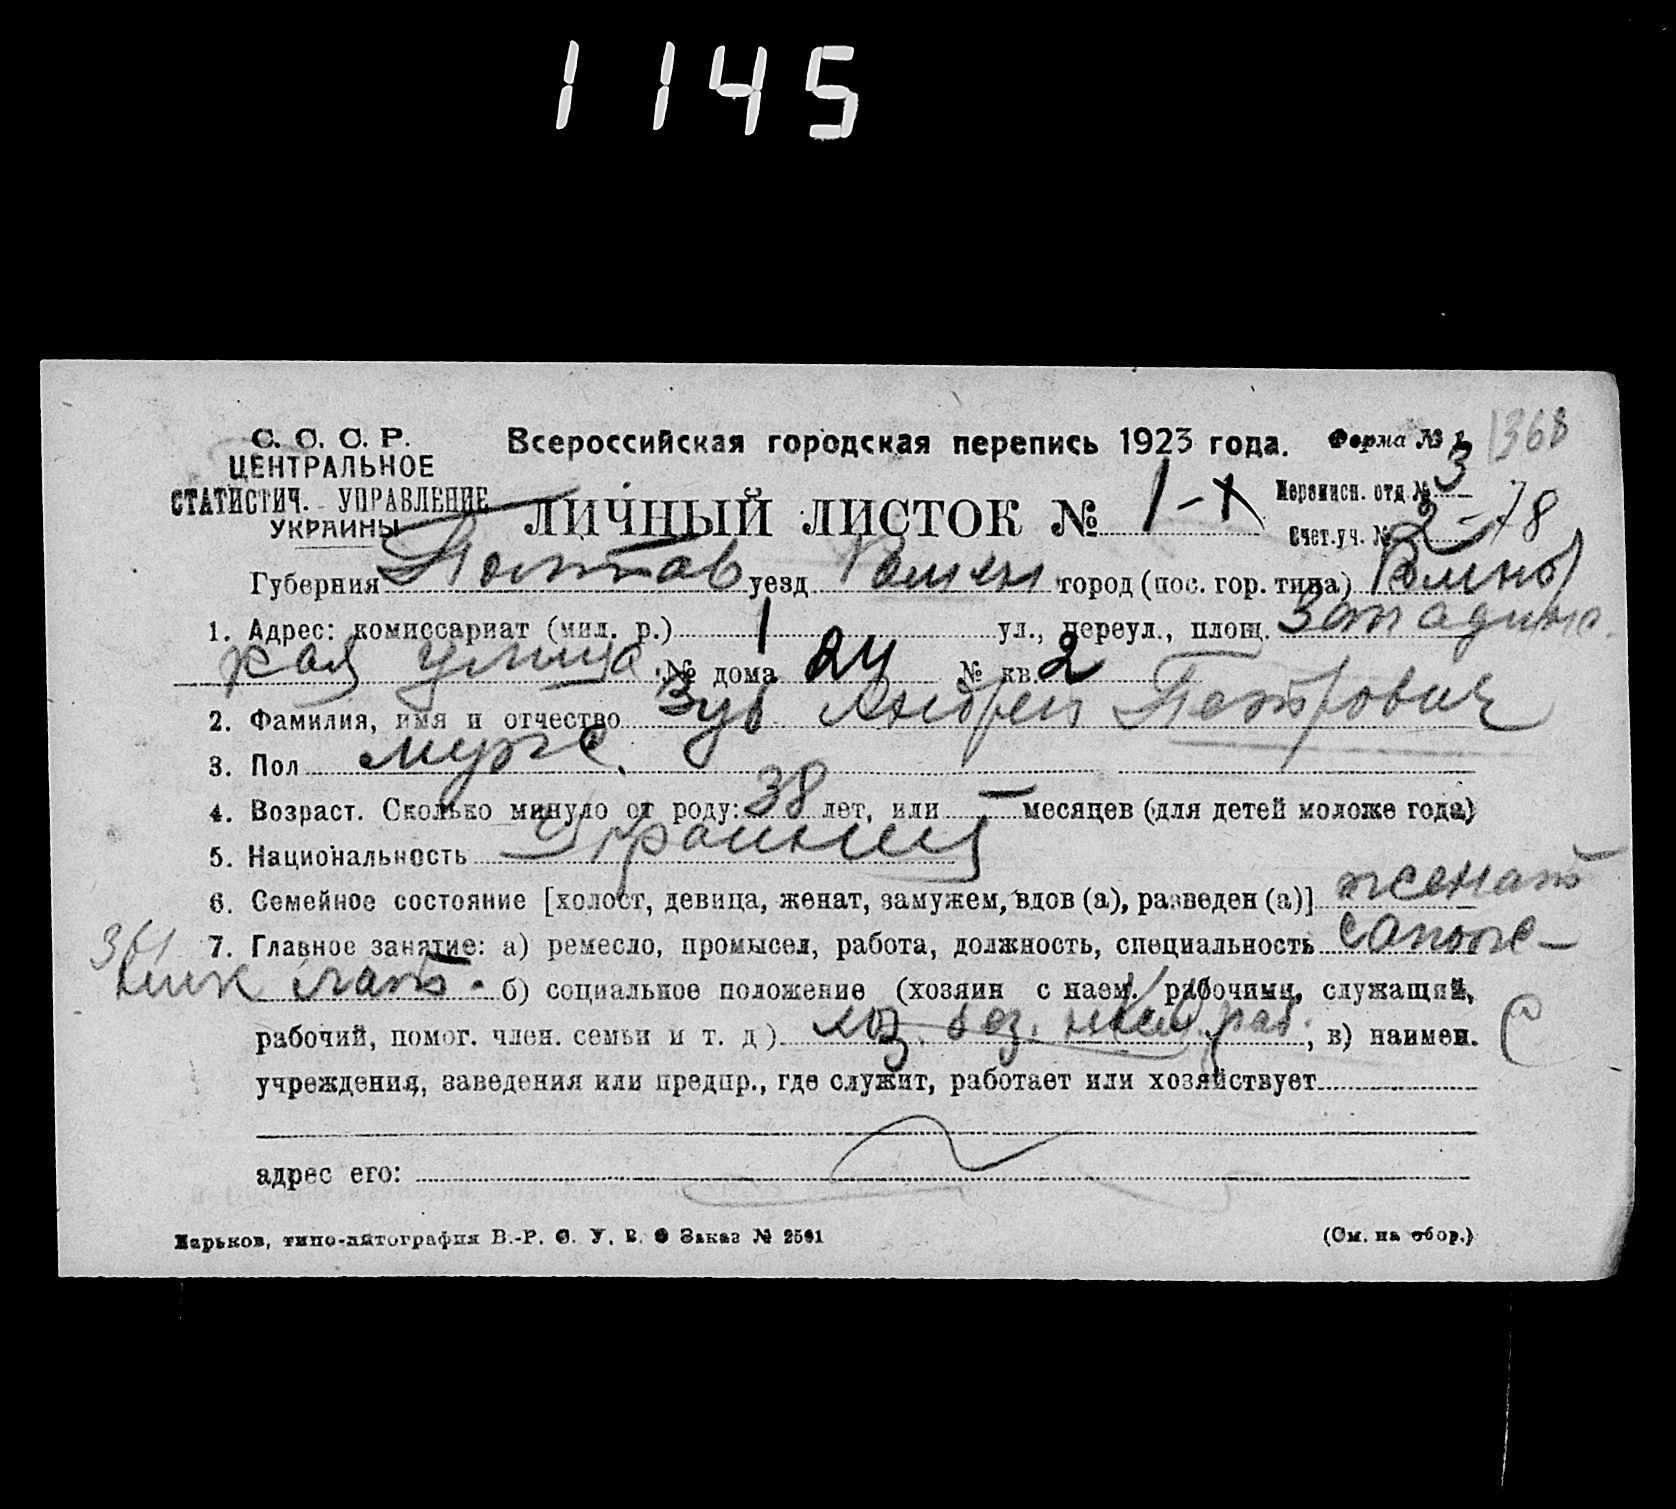 1145
С. С. С. Р.
ЦЕНТРАЛЬНОЕ
СТАТИСТИЧ. УПРАВЛЕНИЕ
УКРАИНЫ
Всероссийская городская перепись 1923 года. Форма № 1 1368
ЛИЧНЫЙ ЛИСТОК № 1-
Переписн. отд № 3
Счет.уч. № 2 - 78
Губерния Полтав уезд Ромен город (пос. гор. типа) Ромны
1. Адрес: комиссариат (мил. р.) 1 ул., переул., площ.
кая улица № дома 24 № кв. 2
2. Фамилия, имя и отчество Зуб Андрей Петрович
3. Пол мужс.
4. Возраст. Сколько минуло от роду: 38 лет, или — месяцев (для детей моложе года)
5. Национальность Украинец
6. Семейное состояние [холост, девица, женат, замужем, вдов (а), разведен (а)] женат
7. Главное занятие: а) ремесло, промысел, работа, должность, специальность сапож-
ник б) социальное положение (хозяин с наем. рабочими, служащий,
рабочий, помог. член. семьи и т. д.) хоз. без. наем. раб. , в) наимен.
учреждения, заведения или предпр., где служит, работает или хозяйствует
адрес его:
Харьков, типо-литография В.-Р. С. У. В. О Заказ № 2501 (См. на обор.)